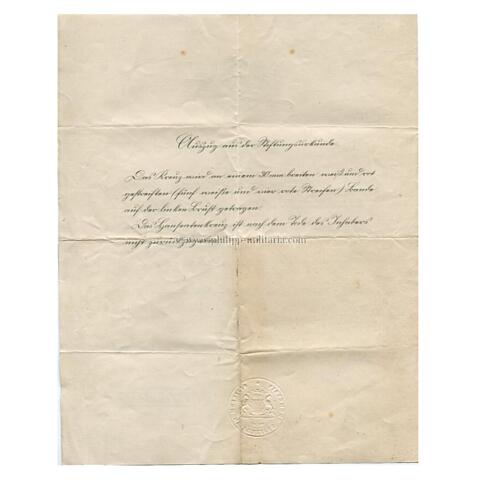 Auszug aus der Stiftungsurkunde.
Das Kreuz wird an einem 30 mm breiten weiß und rot
gestreiften (fünf weiße und vier rote Streifen) Bande
auf der linken Brust getragen.
Das Hanseatenkreuz ist nach dem Tode des Inhabers
nicht zurückzu
philipp-militaria.com